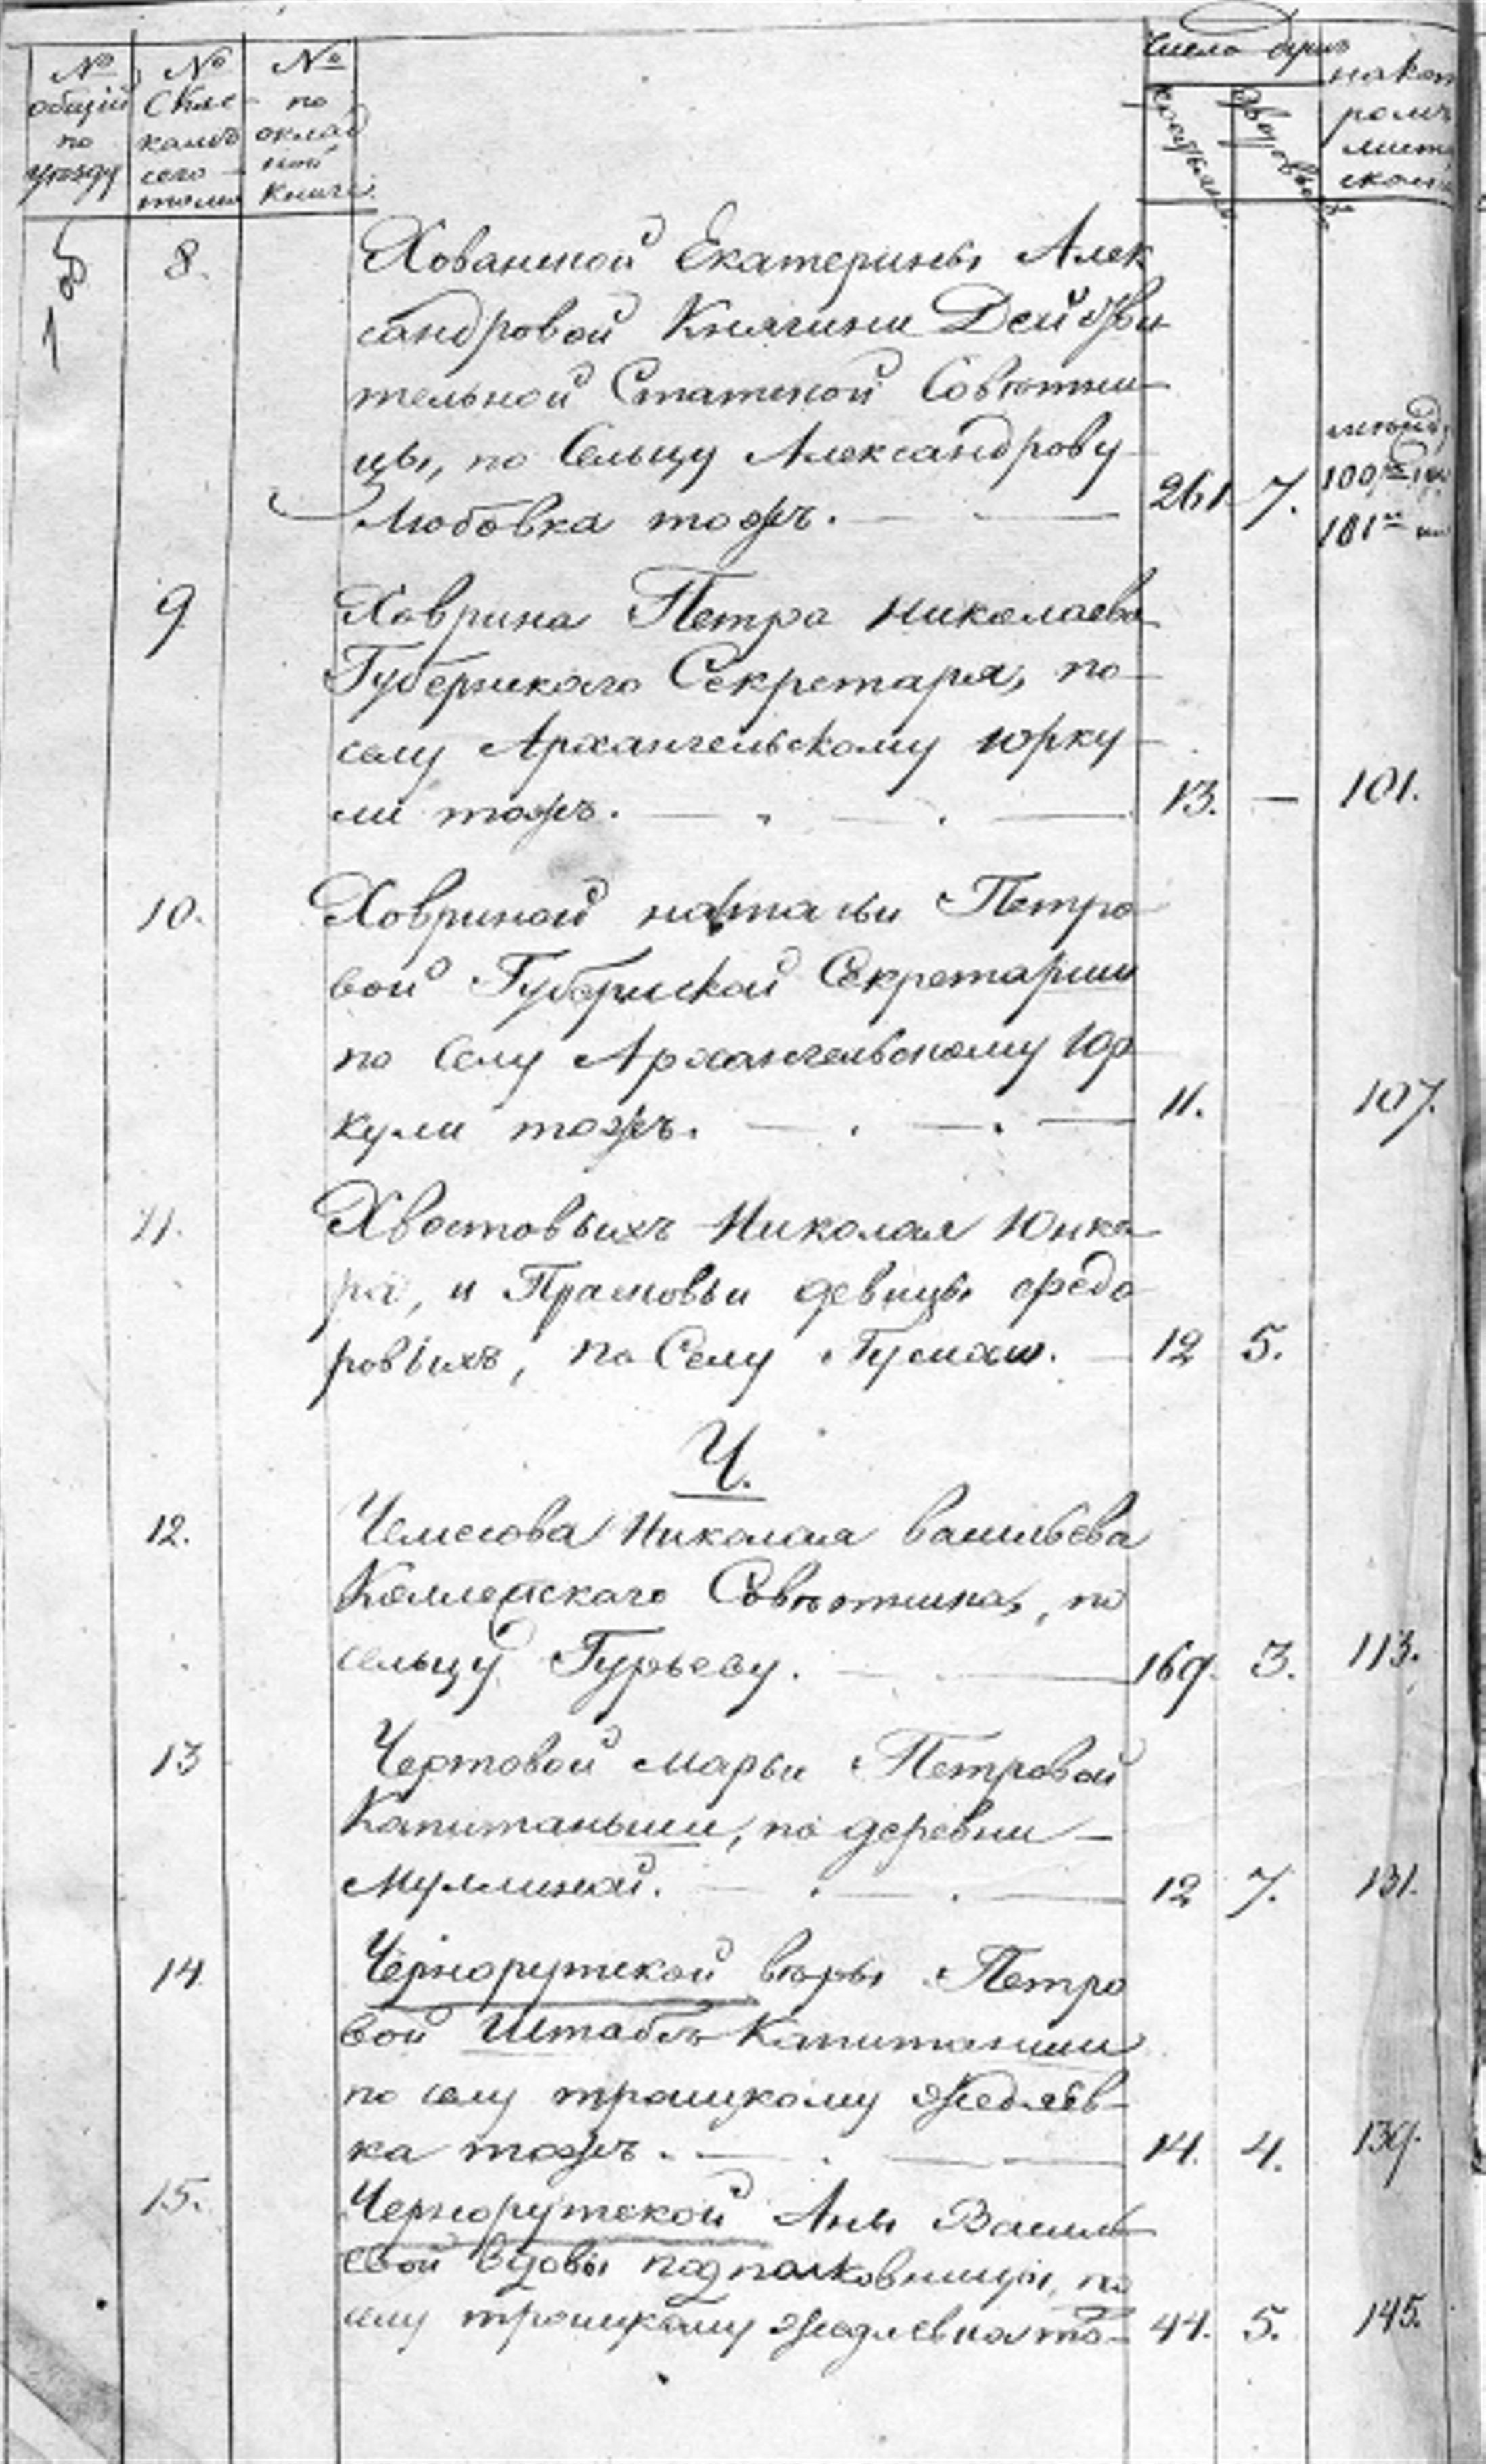 № общій по уѣзду
№ Скас- камъ сего тома
№ по оклад ной книгѣ
Число душъ
крестьянъ
дворовыхъ
на кот ромъ листѣ
8. Хованской Екатерины Алек
сандровой Княгини Действи
тельной Статской Совѣтни
цы, по Сельцу Александрову
Любовка тожъ. 261 7.
100
101
9 Ховрина Петра Николаева
Губернскаго Секретаря, по
селу Архангельскому Юрку
ли тожъ. 13. — 101.
10. Ховриной натальи Петро
вой Губернской Секретарши
по Селу Архангельскому Юр
кули тожъ. 11. 107.
11. Хвостовыхъ Николая Юнке
ра, и Прасковьи девицы Федо
ровыхъ, по Селу 12 5.
Ч.
12. Чемесова Николая васильева
Коллежскаго Совѣтника, по
сельцу Гурьеву. 169. 3. 113.
13 Чертовой Марьи Петровой
Капитанши, по деревни
Муллиной. 12 7. 131.
14 Чернорутской вѣры Петро
вой Штабсъ Капитанши
по селу троицкому Жедлев
ка тожъ. 14. 4. 139.
15. Чернорутской Аны Василь
евой вдовы подполковницы, по
селу троицкому Жедлевка то- 44. 5. 145.